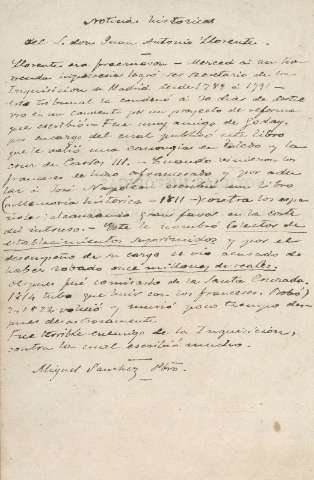 Noticias históricas
del S. don Juan Antonio Llorente.
Llorente era fracmason — Merced á un
inquisicion logró ser secretario de la
Inquisicion de Madrid desde 1789 á 1791 —
este tribunal le condenó á 30 dias de
en un convento por un proyecto de reforma
que escribió — Fue muy amigo de Godoy,
por encargo del cual publicó un libro
que le valió una canongia en Toledo y la
cruz de Carlos III. — Cuando vinieron los
franceses se hizo afrancesado y por
á José Napoleon escribió un libro
(Memoria histórica — 1811 — contra los espa
ñoles: alcanzando gran favor en la corte
del intruso. — Este le nombró Colector de
establecimientos suprimidos y por el
desempeño de su cargo se vio acusado de
haber robado once millones de reales.
después fué comisario de la Santa Cruzada.
1814 tubo que huir con los franceses.
En 1822 volvió y murió poco tiempo des
pues desastrosamente.
Fue terrible enemigo de la Inquisicion,
contra la cual escribió mucho.
Miguel Sanchez Pbro.